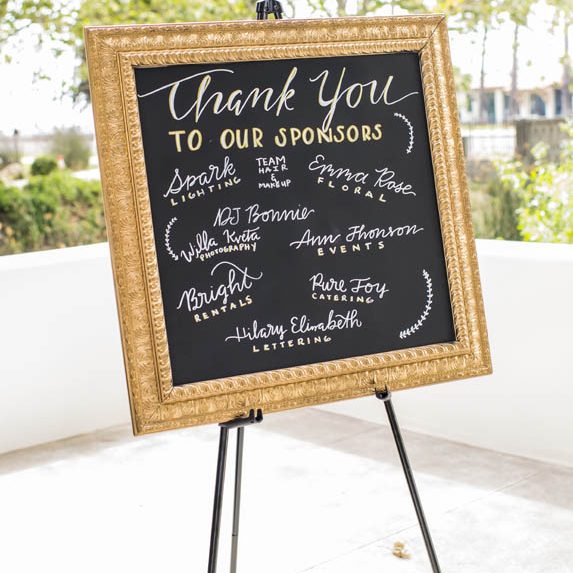 Thank You
TO OUR SPONSORS
Spark
LIGHTING
TEAM
HAIR
&
MAKEUP
Emma Rose
FLORAL
DJ Bonnie
Willa Kveta
PHOTOGRAPHY
Ann Thonson
EVENTS
Bright
RENTALS
Pure Joy
CATERING
Hilary Elizabeth
LETTERING